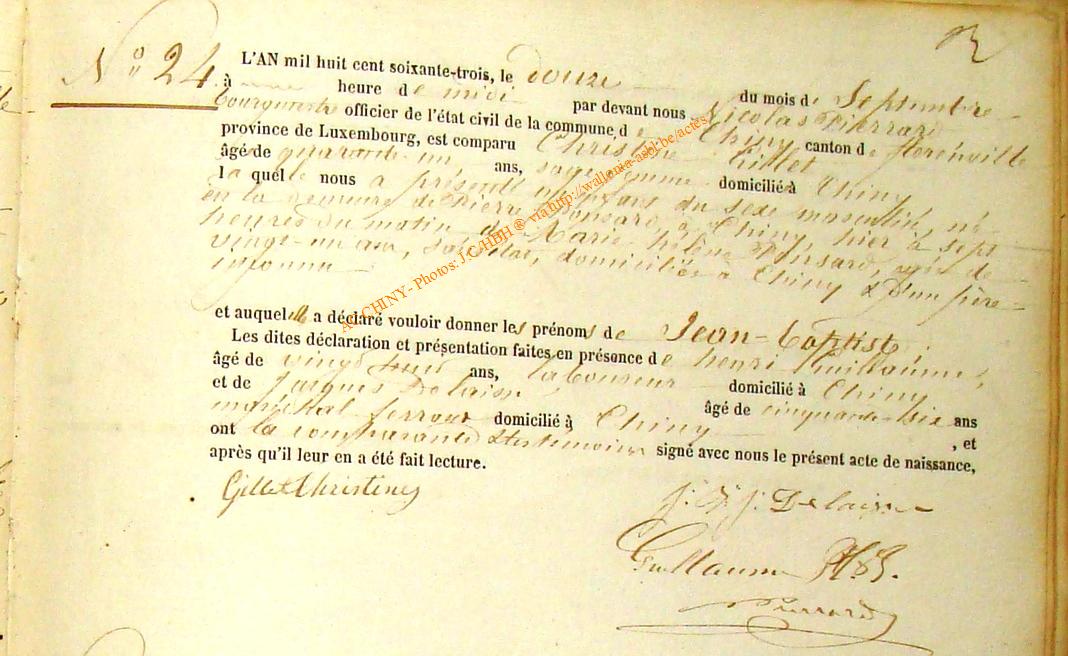 N° 24
L'AN mil huit cent soixante-trois, le douze du mois de Septembre
à une heure de midi par devant nous Nicolas Pierrard
bourgmestre officier de l'état civil de la commune de Chiny canton de florenville
province de Luxembourg, est comparu Christine Gillet
âgé de quarante-un ans, sage femme domicilié à Chiny
laquelle nous a présenté un enfant du sexe masculin, né
en la demeure de Pierre Ponsard, à Chiny, hier à sept
heures du matin de Marie hélène Ponsard, agée de
vingt-un ans, domiciliée à Chiny & d'un père
inconnu
et auquel elle a déclaré vouloir donner les prénoms de Jean-baptiste.
Les dites déclaration et présentation faites en présence de henri Guillaume,
âgé de vingt ans, laboureur domicilié à Chiny
et de Jacques Delaisse âgé de cinquante-six ans
maréchal ferrant domicilié à Chiny, et
ont la comparante & les témoins signé avec nous le présent acte de naissance,
après qu'il leur en a été fait lecture.
Gillet Christine
J. J. Delaisse
Guillaume
Pierrard
AL CHINY - Photos: J.C/HBH ® via http://wallonia-asbl.be/actes